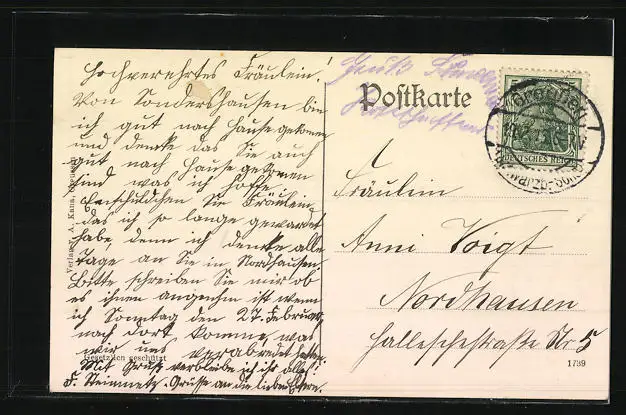 Hochverehrtes Fräulein!
Von Sondershausen bin
ich gut nach Hause gekomen
und denke das Sie auch
gut nach Hause gekomen
sind was ich hoffe.
Entschildchen Sie Fräulein
das ich so lange gewardet
habe, denn ich denke alle
Tage an Sie in Nordhausen
Bitte schreiben Sie mir ob
es ihnen angenehm ist wenn
ich Sonntag den 27. Februar
nach dort komme, was
wir uns verabredet haben.
Mit Gruß verbleibe ich ihr alles!
F. Steinmetz. Grüsse an die lieben Eltern.
Verlag v. A. Kana,
Gesetzlich geschützt
Gruß
Postkarte
DEUTSCHES REICH
Fräulein
Anni Voigt
Nordhausen
Hallesche­straße Nr. 5
1739